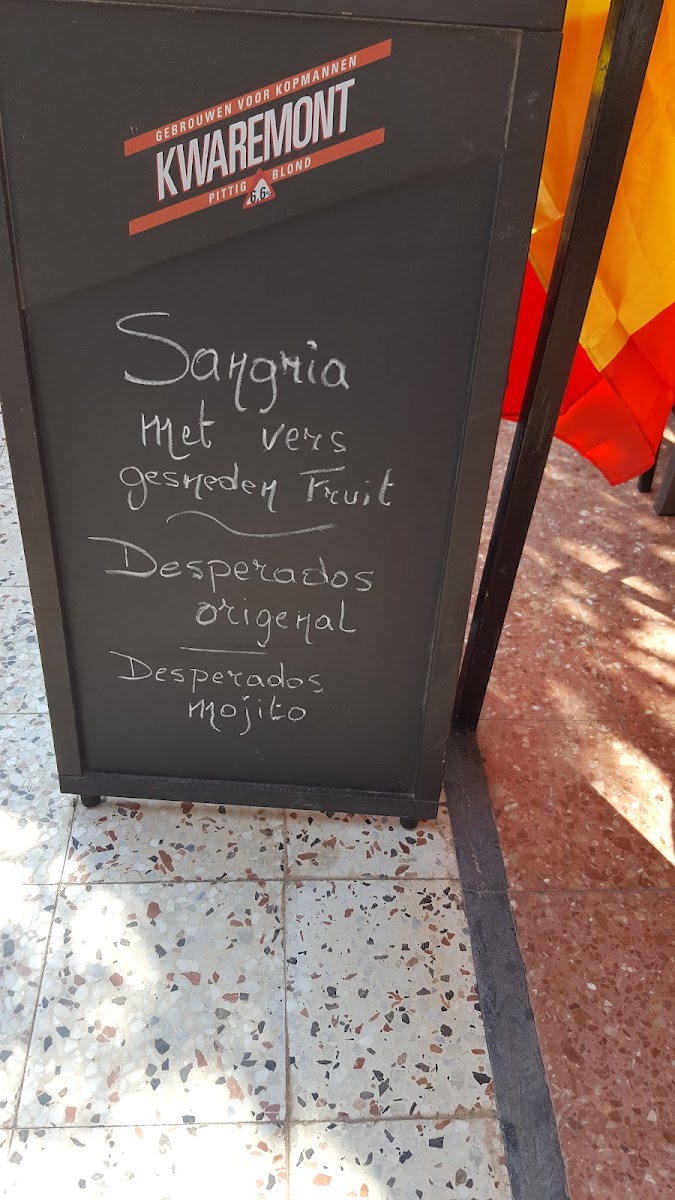 GEBROUWEN VOOR KOPMANNEN
KWAREMONT
PITTIG 6,6% BLOND
Sangria
met vers
gesneden Fruit
Desperados
origenal
Desperados
mojito